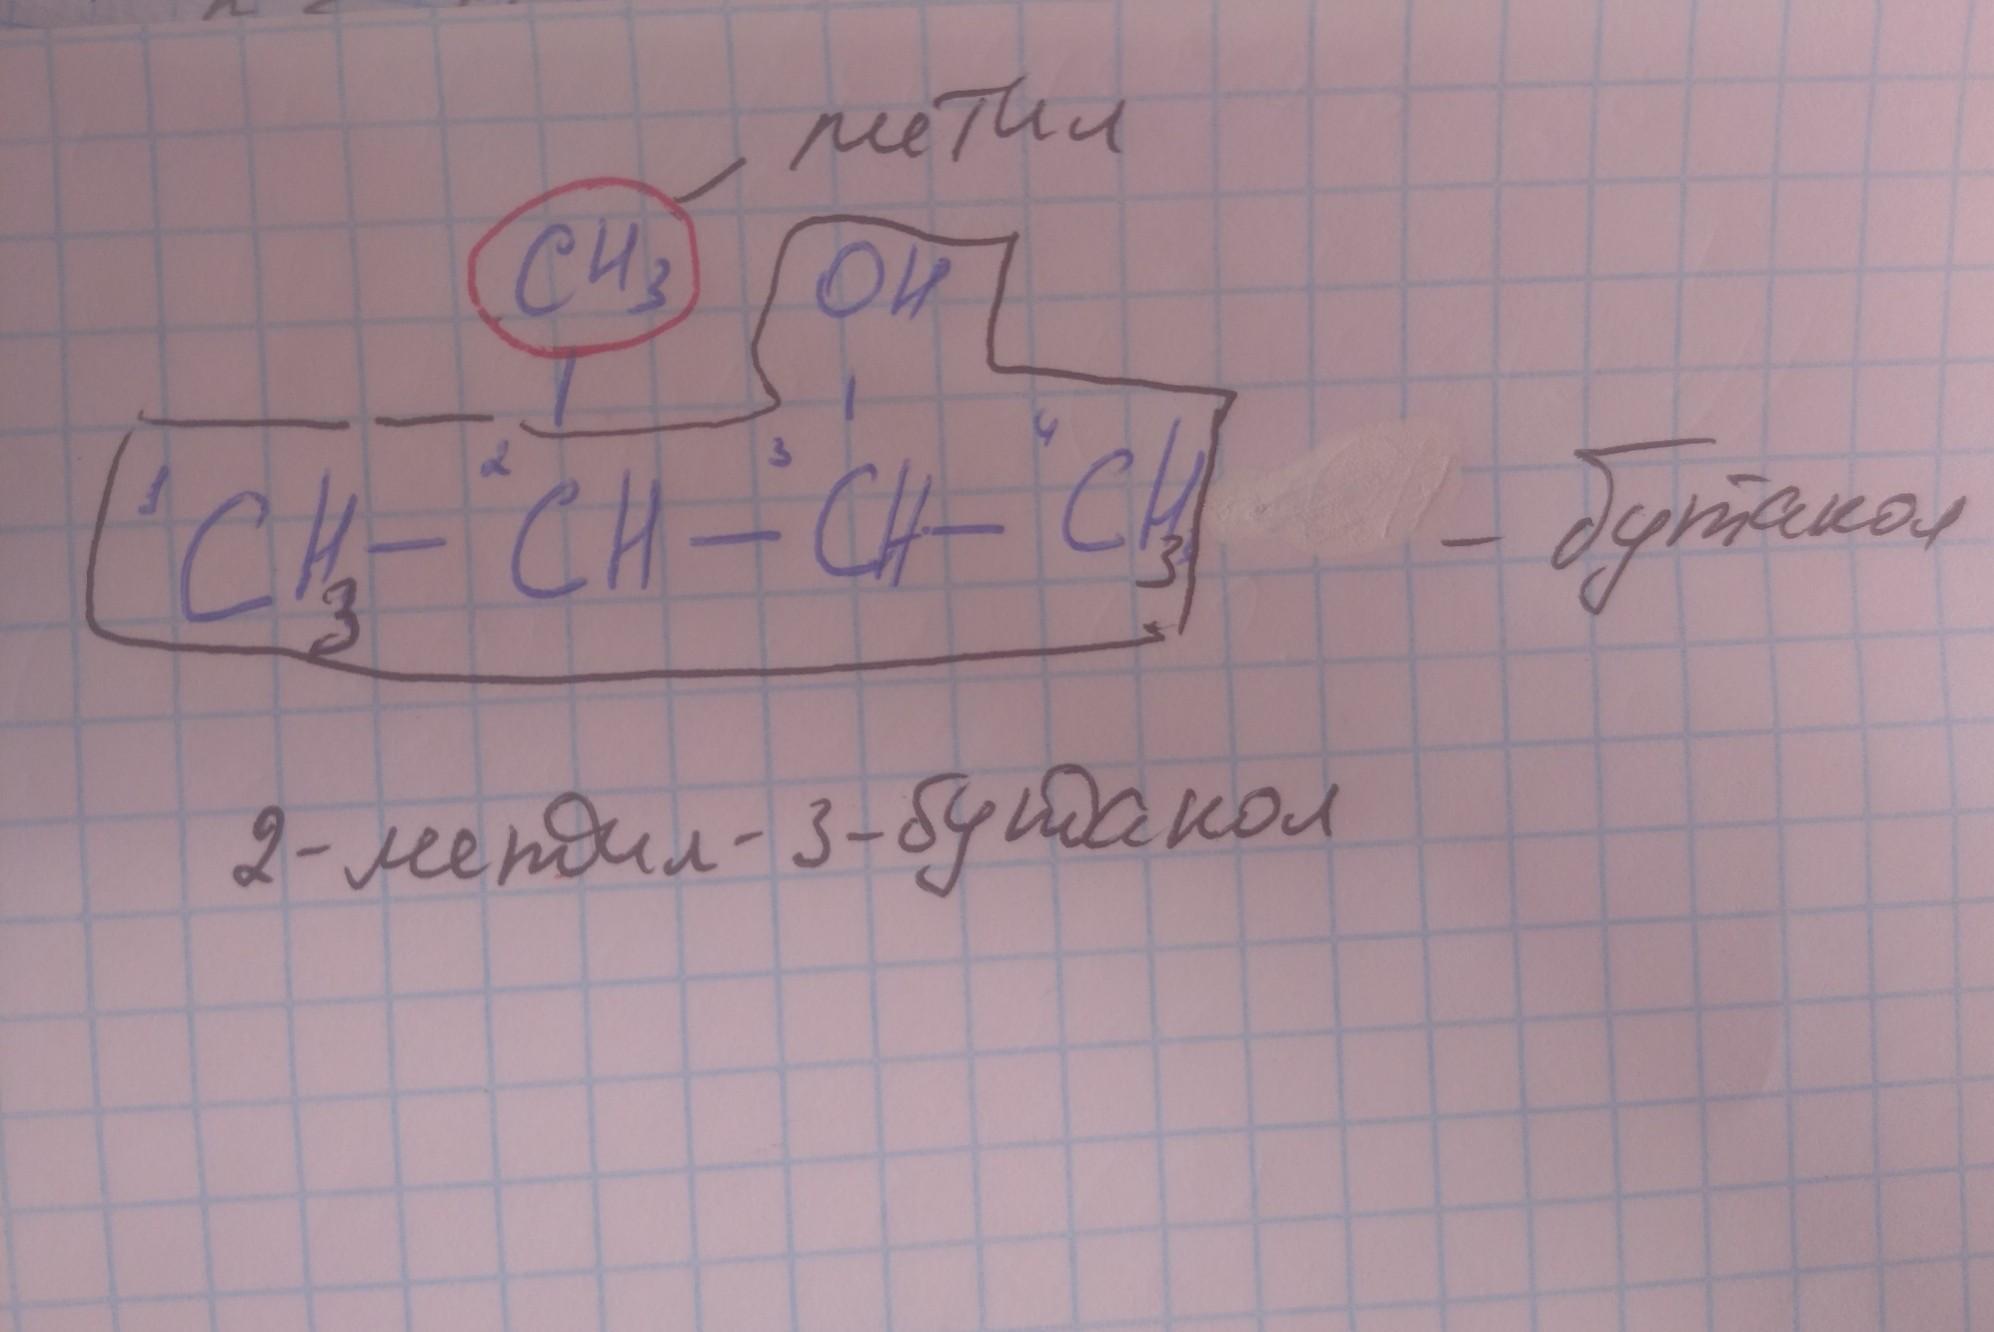 метил
CH3 OH
1 2 3 4
CH3 - CH - CH - CH3 - бутанол
2-метил-3-бутанол